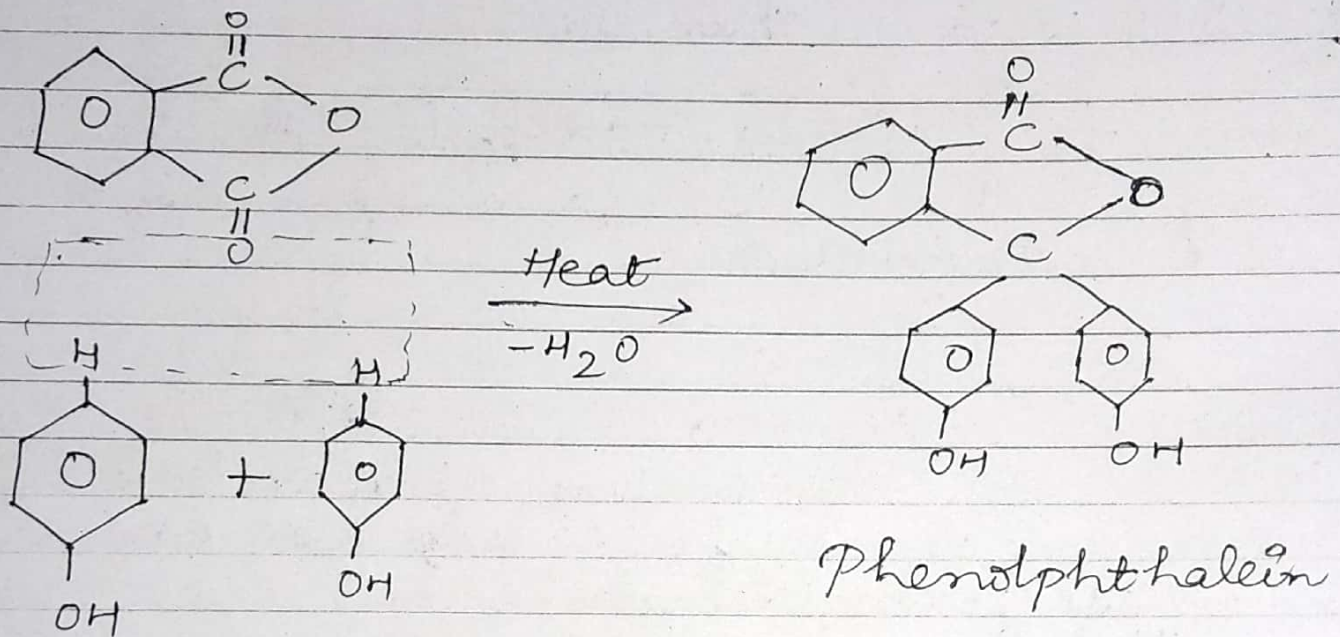 O
C
O
C
O
H H
+
OH OH
Heat
-H2O
O
C
O
C
OH OH
Phenolphthalein